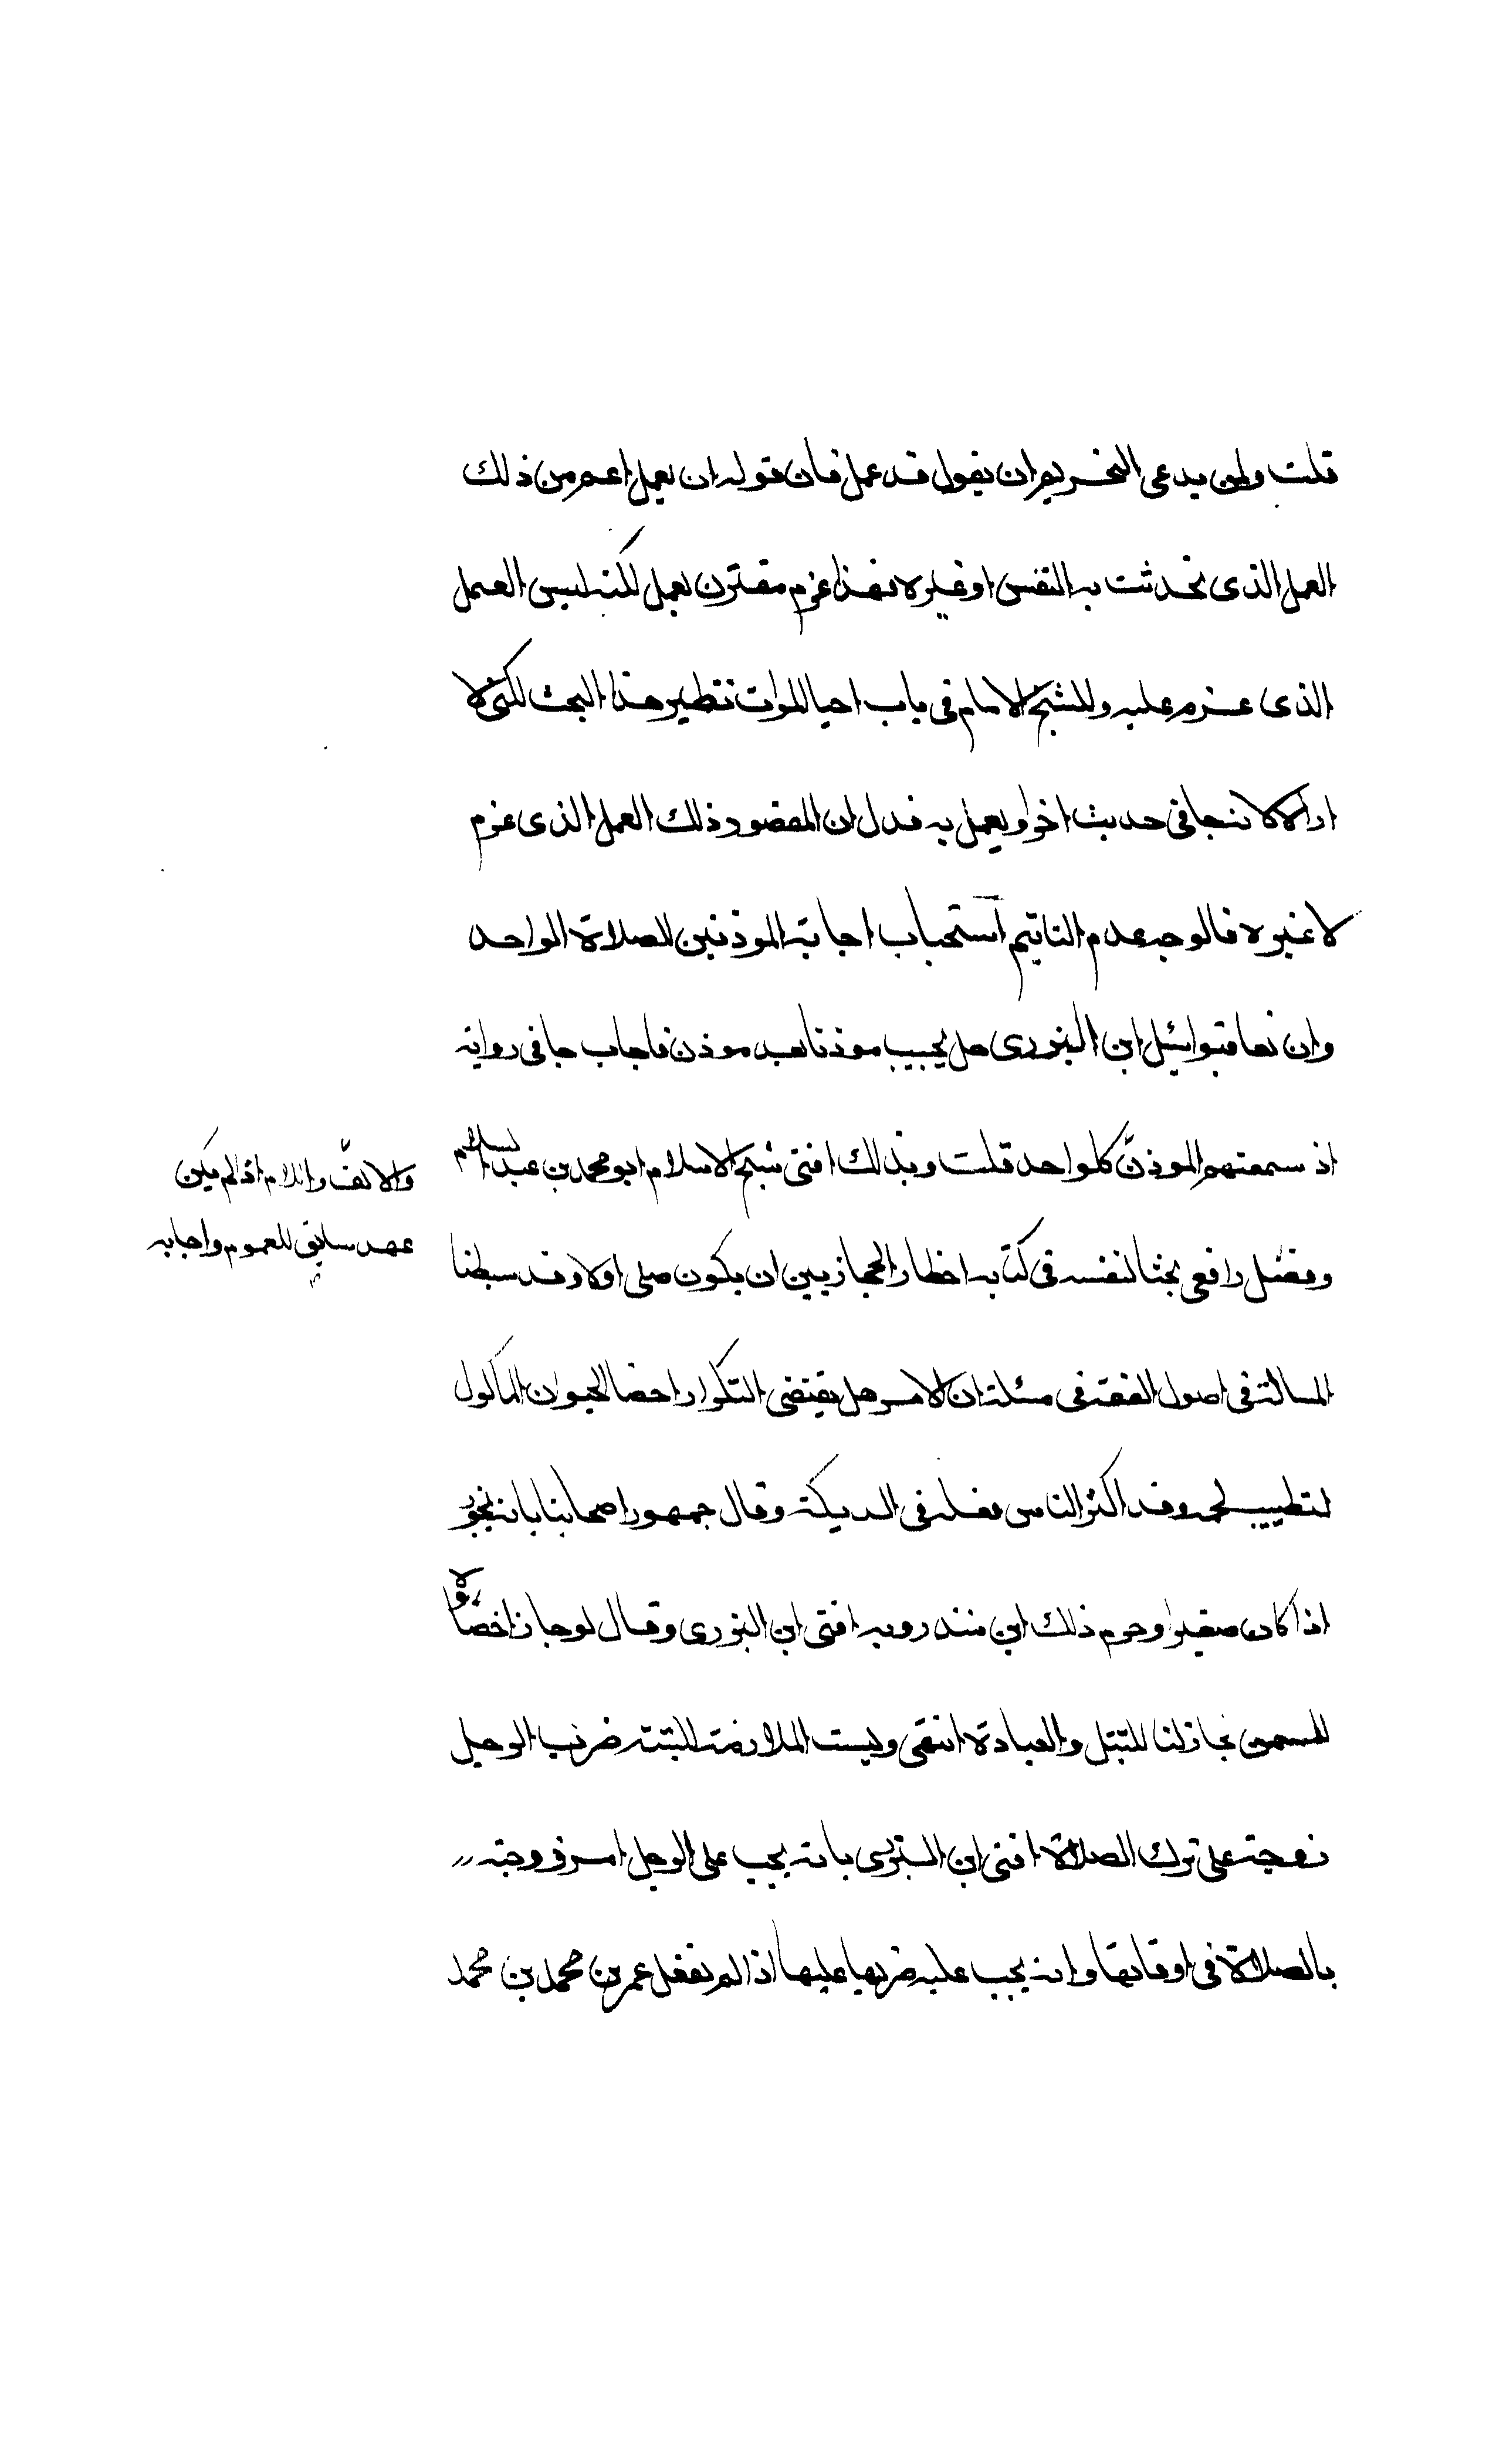 قلت ولمن يدعى التحريم ان يقول قد عمل فان قوله ان يعمل اعم من ذلك
العمل الذى تحدثت به النفس او غيره فهذا عزم مقترن بعمل لكنه ليس العمل
الذى عزم عليه وللشيخ الامام فى باب احيا الموات نظير هذا البحث لكنى لا
اراه لانه جا فى حديث اخر او يعمل به فدل ان المقصود ذلك العمل الذى عزم
لا غيره فالوجه عدم التاثيم استحباب اجابة الموذنين للصلاة الواحد
وان تعاقبوا سئل ابن البزورى هل يجيب موذنا بعد موذن فاجاب جا فى رواية
اذ سمعتهم الموذن كلوا حد قلت وبذلك افتى شيخ الاسلام ابو محمد بن عبد السلام
وفضل رافعى بحثا لنفسه فى كتابه اخطار الحجازيين ان يكون صلى اولا وقد سبطنا
المسالة فى اصول الفقه فى مسئلة ان الامر هل يقتضى التكرار اخصا الحيوان الماكول
لتطييب لحمه وقد اكثر الناس فعله فى الديكة وقال جمهور اصحابنا بانه يجوز
اذا كان صغيرا وحرم ذلك ابن منذر وبه افتى ابن البزورى وقال لو جاز اخصاؤ لا
للسمن لجاز لنا للتبتل والعبادة انتهى وليست الملازمة للبتته ضرب الرجل
زوجته على ترك الصلاة افتى ابن البزرى بانه يجب على الرجل امر زوجته
بالصلاة فى اوقاتها وانه يجب عليه ضربها عليها اذا لم تفعل عمر بن محمد بن محمد
والالف واللام اذ لم يكن
عهد سابق للعموم واجابه